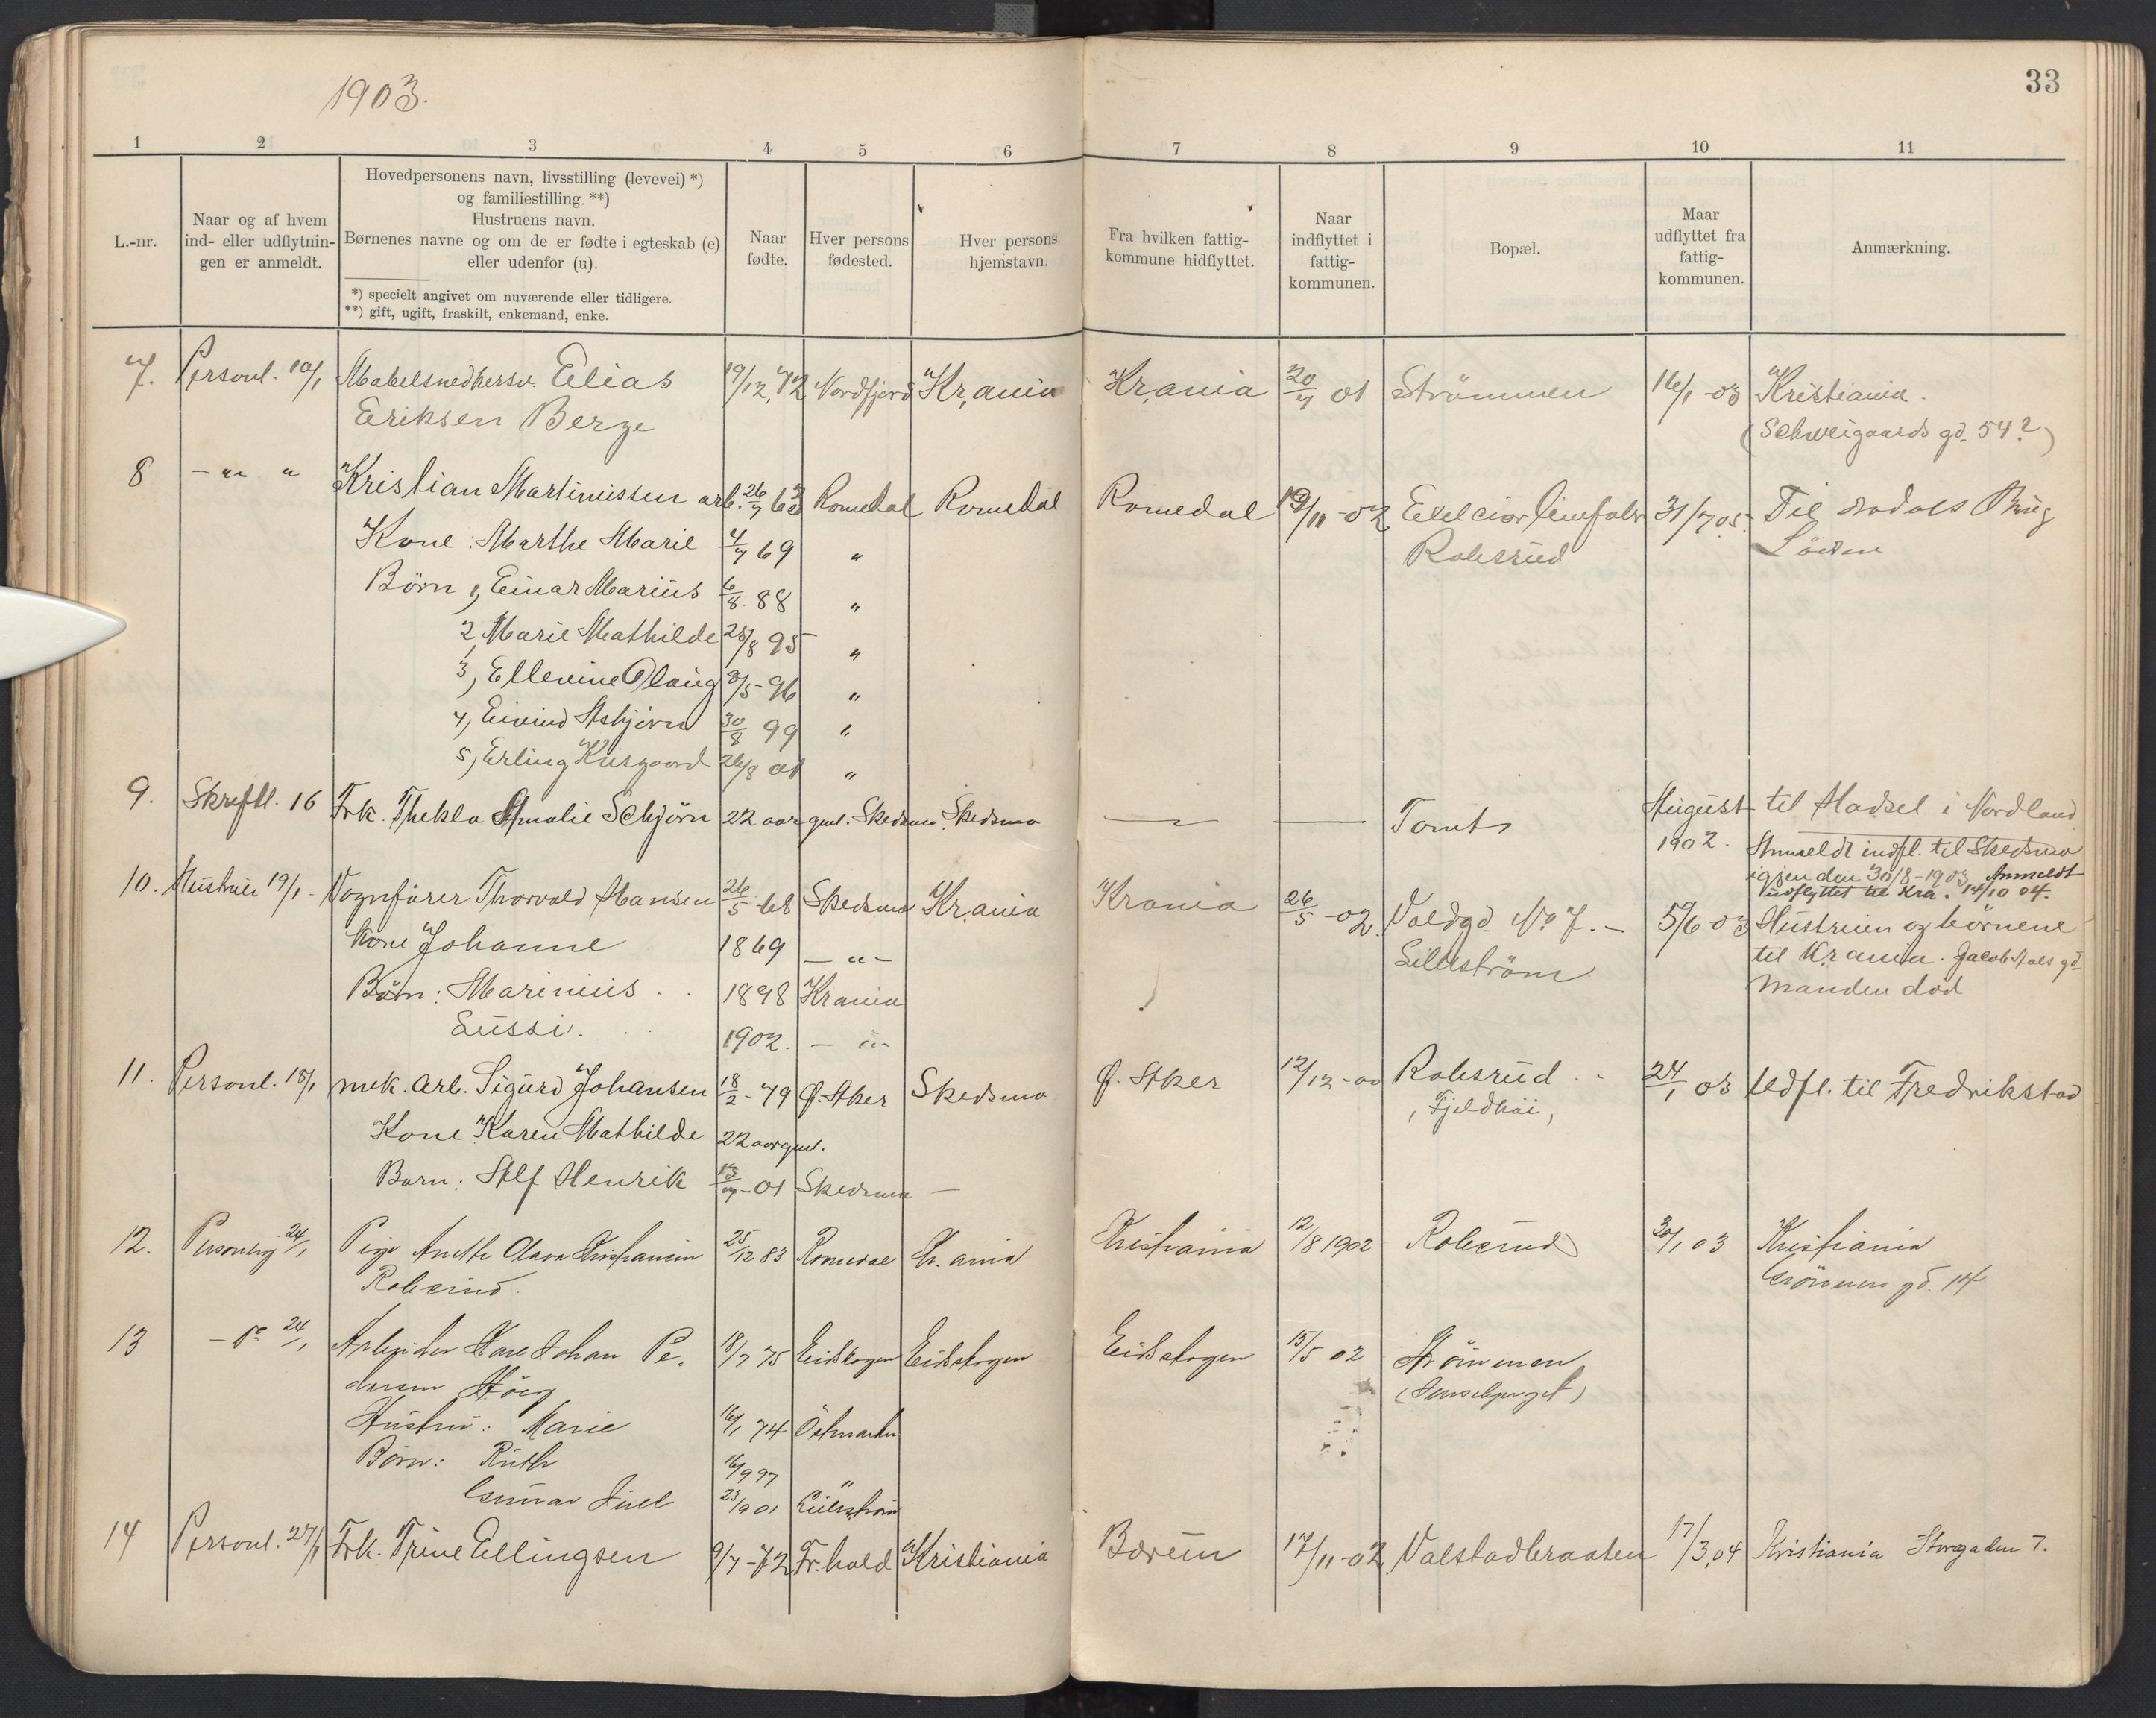 1903.
33
1 2 3 4 5 6 7 8 9 10 11
L.-nr.
Naar og af hvem
ind- eller udflytnin-
gen er anmeldt.
Hovedpersonens navn, livsstilling (levevei) *)
og familiestilling. **)
Hustruens navn.
Børnenes navne og om de er fødte i egteskab (e)
eller udenfor (u).
*) specielt angivet om nuværende eller tidligere.
**) gift, ugift, fraskilt, enkemand, enke.
Naar
fødte.
Hver persons
fødested.
Hver persons
hjemstavn.
Fra hvilken fattig-
kommune hidflyttet.
Naar
indflyttet i
fattig-
kommunen.
Bopæl.
Maar
udflyttet fra
fattig-
kommunen.
Anmærkning.
7. Personl. 10/1 Møbelsnedkersv. Elias 19/12,72 Nordfjord Kr,ania Kr,ania 20/7 01 Strömmen 16/1-03 Kristiania.
Eriksen Berge (Schweigaards gd. 54?)
8 -"- " Kristian Martinissen arb. 26/7 63 Romedal Romedal Romedal 19/11-02 Exelcior limfabr 31/7 05 Til Aadals Brug
Kone: Marthe Marie 4/7 69 " Robsrud Löiten
Börn 1, Einar Marius 6/8 88 "
2, Marie Mathilde 25/8 95 "
3, Ellevine Olaug 8/5-96 "
4, Eivind Asbjörn 30/8 99 "
5, Erling Krisgaard 26/8 01 "
9. Skriftl. 16 Frk. Thekla Amalie Schjörn 22 aar gml. Skedsmo Skedsmo — — Tomt August til Hadsel i Nordland
1902. Anmeldt indfl. til Skedsmo
igjen den 30/8-1903 Anmeldt
udflyttet til Kra. 14/10 04.
10. Hustruen 19/1- Vognfører Thorvald Hansen 26/5-68 Skedsmo Kr,ania Krania 26/5-02. Voldgd. No 7.- 5/6 03 Hustruen og börnene
Kone Johanne 1869 -"- Lillström til Kr ania. Jacob Aals gd
Börn: Marinius . . 1898 Krania Manden död
Lussi. . . 1902. - "-
11. Personl. 18/1 mek. arb. Sigurd Johansen 18/2-79 Ø. Aker Skedsmo Ø. Aker 12/12-00 Robsrud . - 24/1 03 Udfl. til Fredrikstad
Kone Karen Mathilde 22 aar gml. , Fjeldhöi,
Barn: Alf Henrik -01 Skedsmo —
12. Personlig 24/1 Pige Anette Olava Kristiansen 25/12 83 Romedal Kr. ania Kristiania 12/8 1902 Robsrud 30/1 03 Kristiania
Robsrud. Grönnens gd. 14
13 - do 24/1 Arbeider Karl Johan Pe- 18/7 75 Eidskogen Eidskogen Eidskogen 15/5 02 Strömmen
dersen Höeg
Hustru: Marie 16/1 74 Östmarken
Börn: Ruth 16/9 97
Gunnar Juel 23/1901 Lilleström
14 Personl. 27/1 Frk. Trine Ellingsen 9/7-72 Fr.hald Kristiania Bærum 17/11-02. Valstadbraaten 17/3,04 Kristiania Storgaden 7.